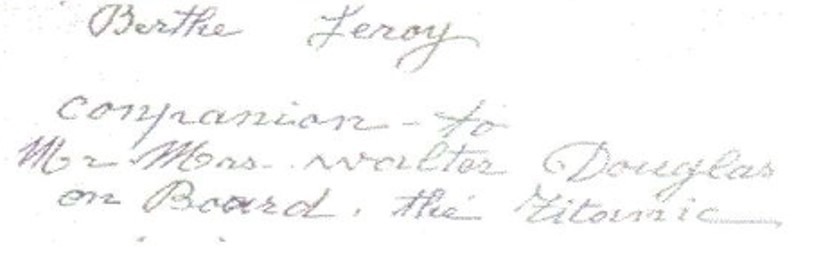 Berthe Leroy
companion - to
Mr Mrs. Walter Douglas
on Board, the Titanic